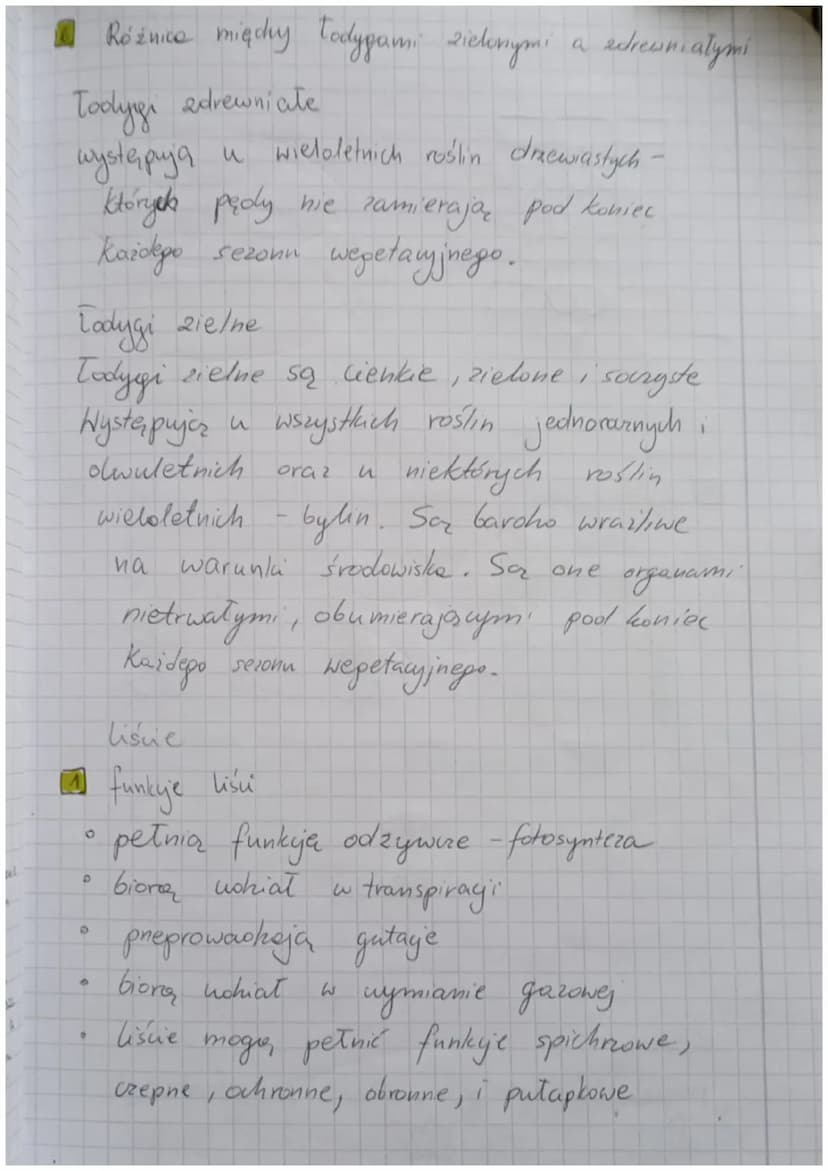 6 Różnice między łodygami zielonymi a zdrewniałymi
Łodygi zdrewniałe
występują u wieloletnich roślin drzewiastych -
których pędy nie zamierają pod koniec
każdego sezonu wegetacyjnego.
Łodygi zielne
Łodygi zielne są cienkie, zielone i soczyste
Występują u wszystkich roślin jednorocznych i
dwuletnich oraz u niektórych roślin
wieloletnich - bylin. Są bardzo wrażliwe
na warunki środowiska. Są one organami
nietrwałymi, obumierającymi pod koniec
każdego sezonu wegetacyjnego.
liście
1 funkcje liści
• pełnią funkcję odżywcze - fotosynteza
• biorą udział w transpiracji
• przeprowadzają gutację
• biorą udział w wymianie gazowej
• liście mogą pełnić funkcje spichrzowe,
czepne, ochronne, obronne, i pułapkowe